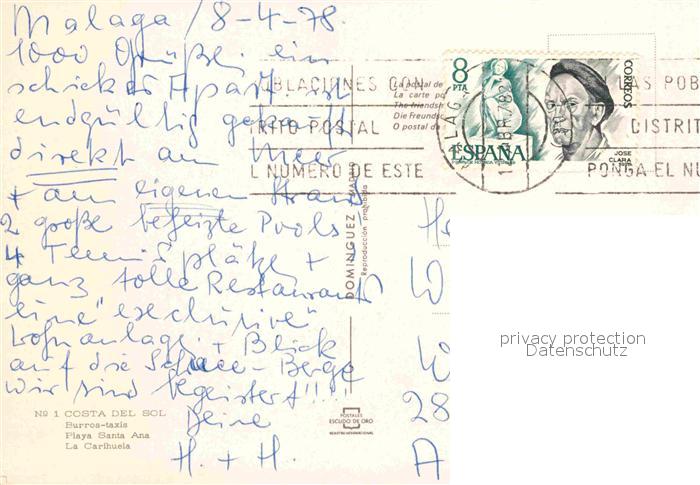 Malaga / 8-4-78.
1000 Grüße! ein
schickes Apart. ist
endgültig gekauft
direkt am Meer
+ am eigenen Strand
2 große beheizte Pools!
4 Tennisplätze +
ganz tolle Restaurants
eine "exclusive"
Wohnanlage + Blick
auf die Schnee-Berge
Wir sind begeistert!!!!
Deine
H. + H.
Nº 1 COSTA DEL SOL
Burros-taxis
Playa Santa Ana
La Carihuela
POSTALES
ESCUDO DE ORO
REGISTRO INTERNACIONAL
DOMINGUEZ - MADRID
Reproducción prohibida
La postal de
La carte po
The friendsh
Die Freundsc
O postal da
BLACIONES CON
RITO POSTAL
L NUMERO DE ESTE
LAS POB
DISTRIT
PONGA EL NU
8
PTA
ESPAÑA
CORREOS
JOSE
CLARA
28
privacy protection
Datenschutz